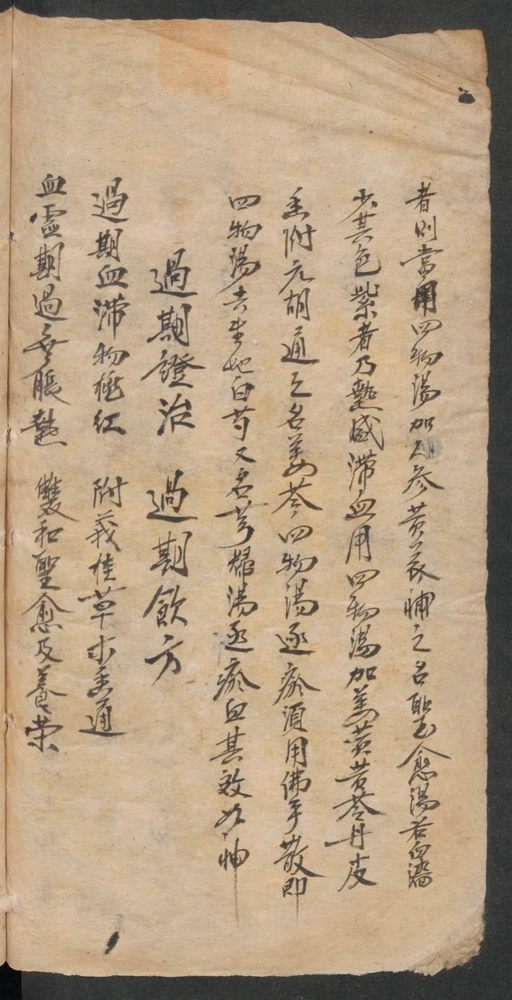 者則當用四物湯加人參黃芪補之名聖愈湯若血濇
少其色紫者乃熱盛滯血用四物湯加姜黃苦芩丹皮
香附元胡通之名姜芩四物湯逐瘀須用佛手散即
四物湯去生地白芍又名芎歸湯逐瘀血其效如神
過期證治 過期飲方
過期血滯物桃紅 附莪桂草木香通
血虛期過無脹熱 雙和聖愈及養榮